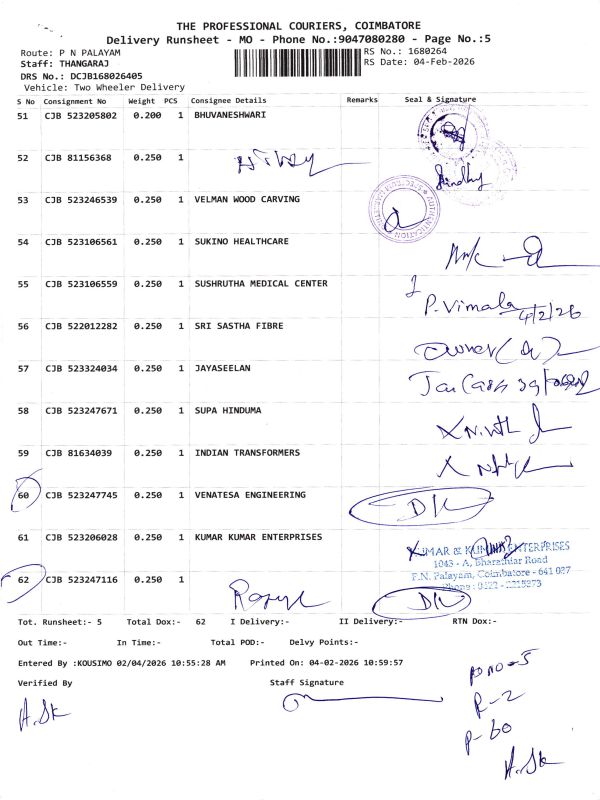 THE PROFESSIONAL COURIERS, COIMBATORE
Delivery Runsheet - MO - Phone No.:9047080280 - Page No.:5
Route: P N PALAYAM
RS No.: 1680264
Staff: THANGARAJ
RS Date: 04-Feb-2026
DRS No.: DCJB168026405
Vehicle: Two Wheeler Delivery
S No Consignment No Weight PCS Consignee Details Remarks Seal & Signature
51 CJB 523205802 0.200 1 BHUVANESHWARI
52 CJB 81156368 0.250 1
Sindhu
53 CJB 523246539 0.250 1 VELMAN WOOD CARVING
AUTHENTICATION
54 CJB 523106561 0.250 1 SUKINO HEALTHCARE
55 CJB 523106559 0.250 1 SUSHRUTHA MEDICAL CENTER
P. Vimala 4/2/26
56 CJB 522012282 0.250 1 SRI SASTHA FIBRE
owner
57 CJB 523324034 0.250 1 JAYASEELAN
58 CJB 523247671 0.250 1 SUPA HINDUMA
59 CJB 81634039 0.250 1 INDIAN TRANSFORMERS
60 CJB 523247745 0.250 1 VENATESA ENGINEERING
D/K
61 CJB 523206028 0.250 1 KUMAR KUMAR ENTERPRISES
KUMAR & KUMAR ENTERPRISES
1043 - A, Bharathiar Road
P.N. Palayam, Coimbatore - 641 037
62 CJB 523247116 0.250 1
D/K
Tot. Runsheet:- 5 Total Dox:- 62 I Delivery:- II Delivery:- RTN Dox:-
Out Time:- In Time:- Total POD:- Delvy Points:-
Entered By :KOUSIMO 02/04/2026 10:55:28 AM Printed On: 04-02-2026 10:59:57
Verified By Staff Signature
A.Sk
R-2
P-60
A.Sk